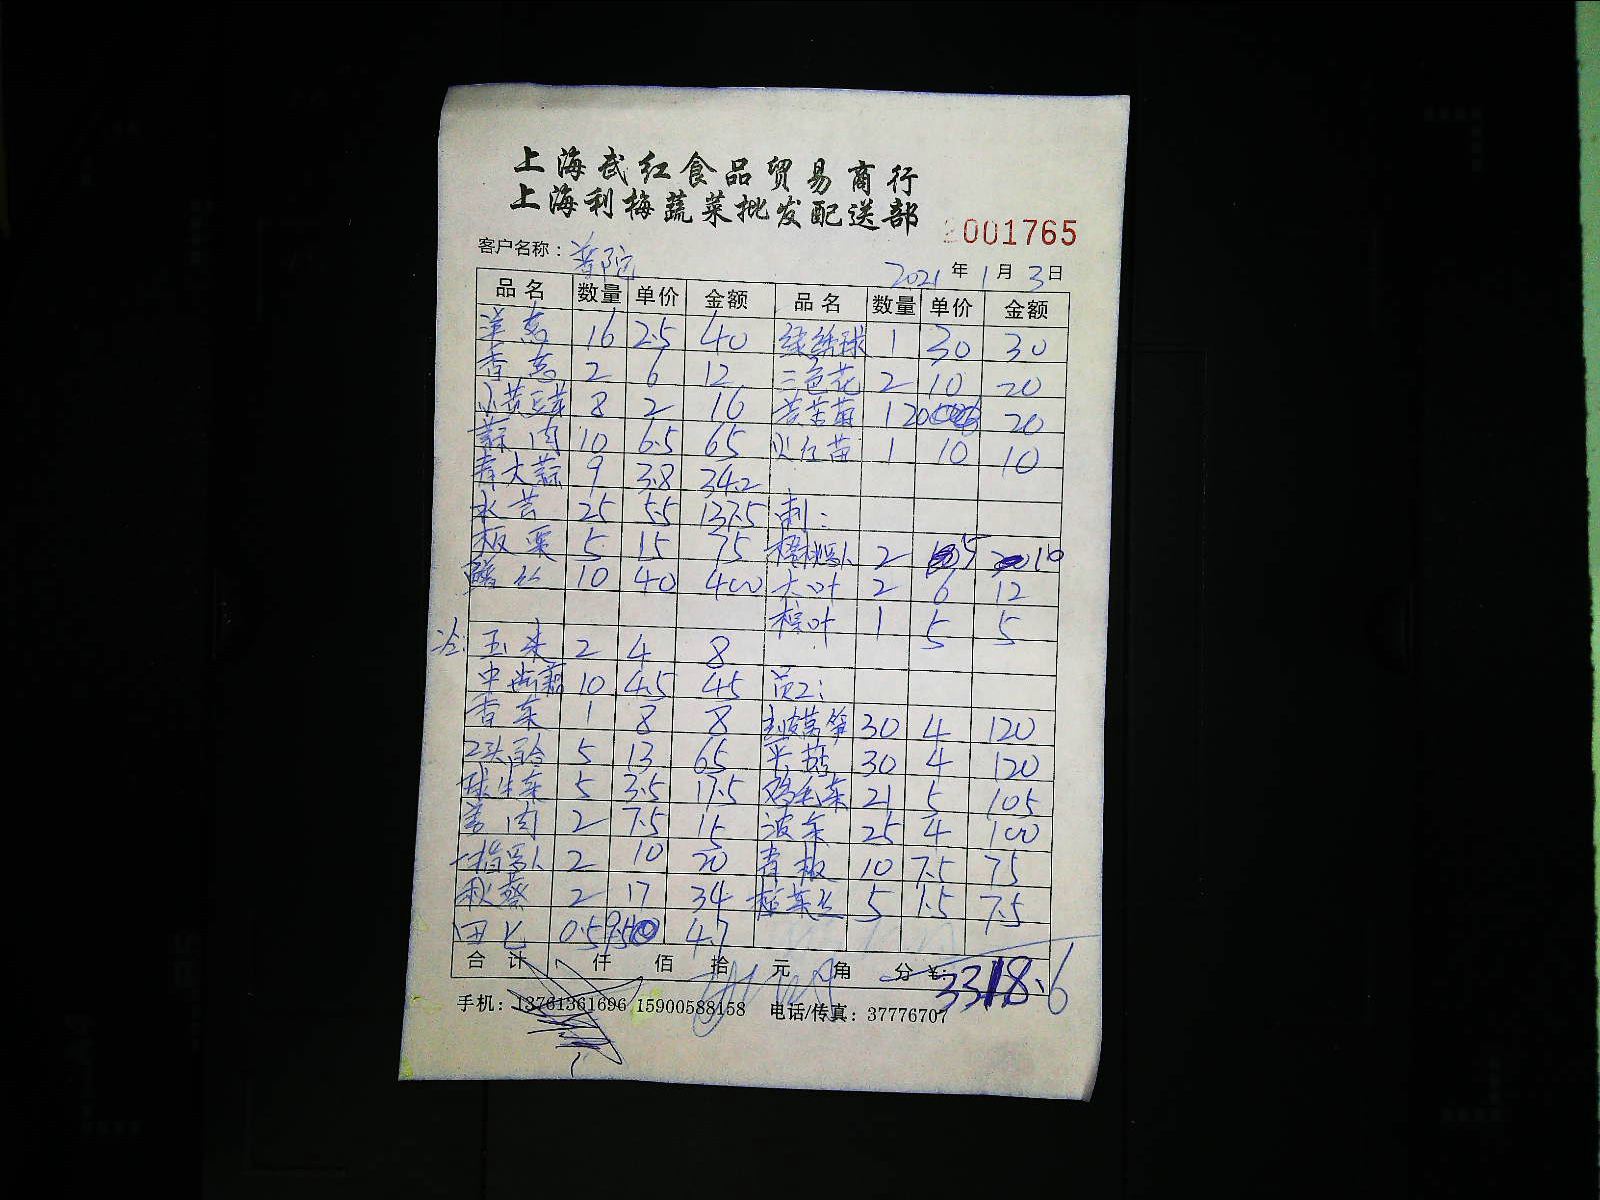 上海武红食品贸易商行
上海利梅蔬菜批发配送部
2001765
客户名称：普陀 2021年1月3日
品名 数量 单价 金额 品名 数量 单价 金额
洋葱 16 2.5 40 绿绣球 1 30 30
香葱 2 6 12 三色花 2 10 20
小黄豆芽 8 2 16 苦苣苗 1 20 20
蒜肉 10 6.5 65 火红苗 1 10 10
青大蒜 9 3.8 34.2
水芹 25 5.5 137.5 刺：
板栗 5 15 75 樱桃萝卜 2 5 10
鳝丝 10 40 400 大叶 2 6 12
粽叶 1 5 5
冷：玉米 2 4 8
中 藕 10 4.5 45 员工：
香菜 1 8 8 去皮莴笋 30 4 120
2头百合 5 13 65 平菇 30 4 120
球生菜 5 3.5 17.5 鸡毛菜 21 5 105
姜肉 2 7.5 15 波菜 25 4 100
一指萝卜 2 10 20 青椒 10 7.5 75
秋葵 2 17 34 榨菜丝 5 1.5 7.5
田七 0.5 9.5 4.7
合计 仟 佰 拾 元 角 分 ¥：3318.6
手机：13761361696 15900588158 电话/传真：37776707